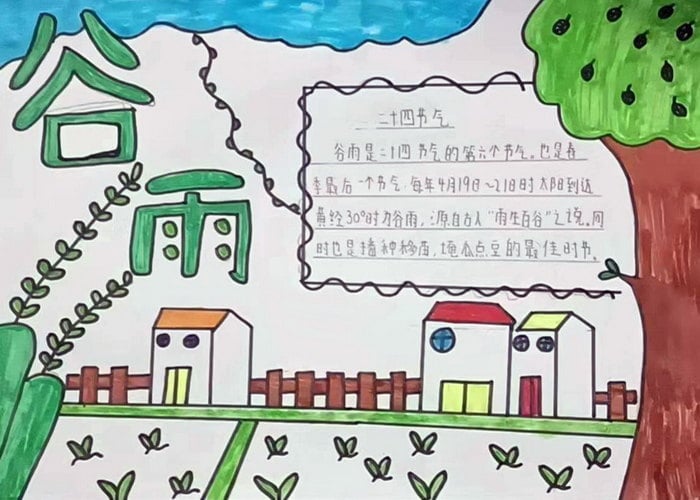 谷雨
二十四节气
谷雨是二十四节气的第六个节气。也是春
季最后一个节气,每年4月19日~21日时太阳到达
黄经30°时为谷雨,源自古人"雨生百谷"之说。同
时也是播种移苗,埯瓜点豆的最佳时节。